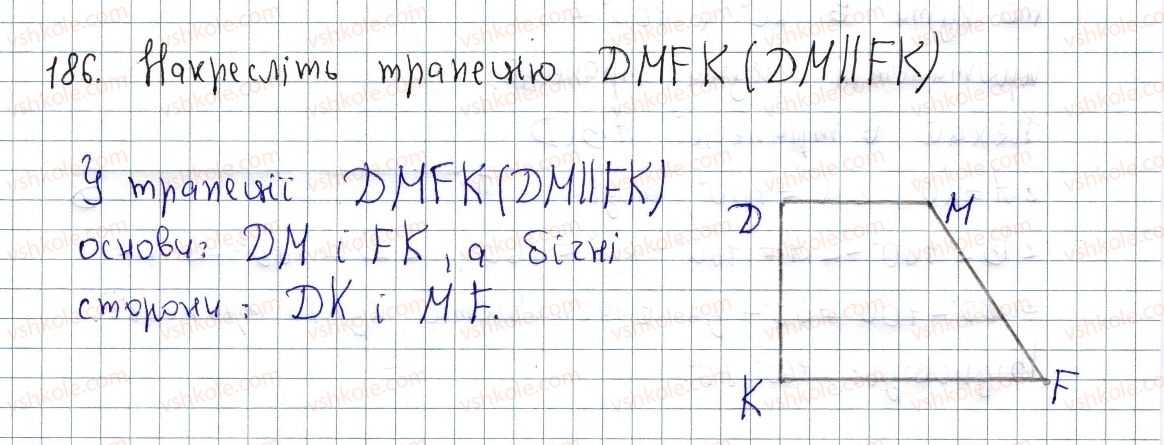 186. Накресліть трапецію DMFK (DM||FK)
У трапеції DMFK (DM||FK)
основи: DM і FK, а бічні
сторони: DK і MF.
D
M
K
F
vshkole.com